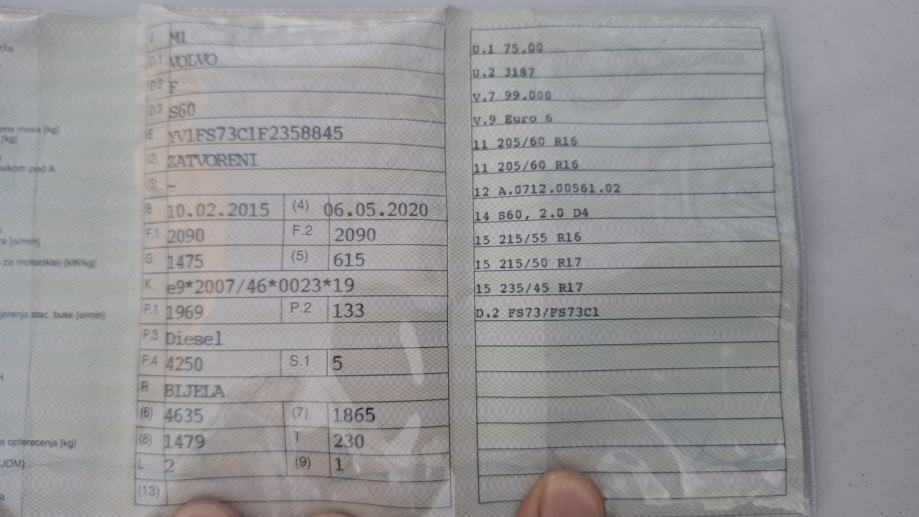 J MI
D.1 VOLVO
D.2 F
D.3 S60
E YV1FS73C1F2358845
(2) ZATVORENI
(3) -
B 10.02.2015 (4) 06.05.2020
F.1 2090 F.2 2090
G 1475 (5) 615
K e9*2007/46*0023*19
P.1 1969 P.2 133
P.3 Diesel
P.4 4250 S.1 5
R BIJELA
(6) 4635 (7) 1865
(8) 1479 T 230
L 2 (9) 1
(13)
U.1 75.00
U.2 3187
V.7 99.000
V.9 Euro 6
11 205/60 R16
11 205/60 R16
12 A.0712.00561.02
14 S60, 2.0 D4
15 215/55 R16
15 215/50 R17
15 235/45 R17
D.2 FS73/FS73C1
masa [kg]
/kg]
pod A
[o/min]
za motocikle) [kW/kg]
stac. buke [o/min]
opterećenja [kg]